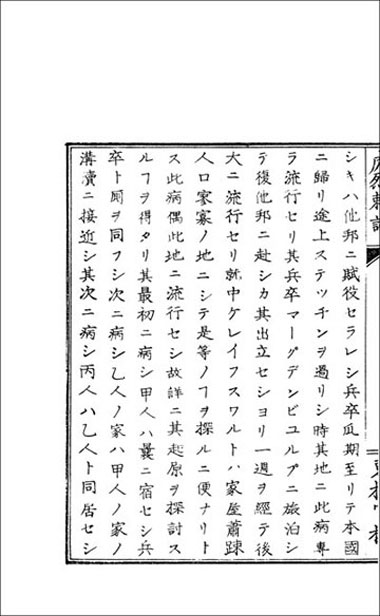 シキハ他邦ニ賦役セラレシ兵卒瓜期至リテ本國
ニ歸リ途上ステッチンヲ過リシ時其地ニ此病專
ラ流行セリ其兵卒マーグデンビユルプニ旅泊シ
テ復他邦ニ赴シカ其出立セシヨリ一週ヲ經テ後
大ニ流行セリ就中ケレイフスワルトハ家屋蕭踈
人口寡寡ノ地ニシテ是等ノヿヲ探ルニ便ナリト
ス此病偶此地ニ流行セシ故詳ニ其起原ヲ探討ス
ルヿヲ得タリ其最初ニ病シ甲人ハ曩ニ宿セシ兵
卒ト厠ヲ同フシ次ニ病シ乙人ノ家ハ甲人ノ家ノ
溝瀆ニ接近シ其次ニ病シ丙人ハ乙人ト同居セシ